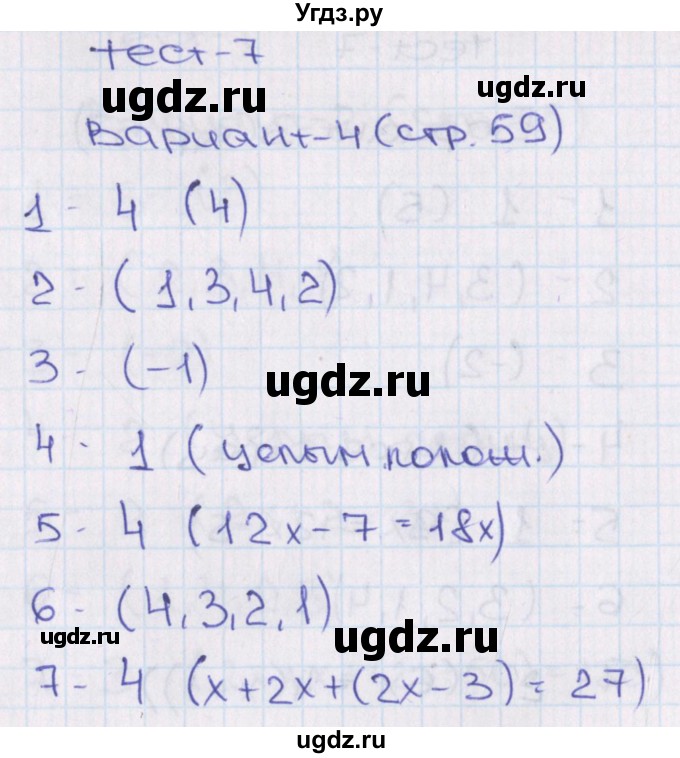 Угдз.ру
тест-7
ugdz.ru
ugdz.ru
Вариант-4 (стр. 59)
1 - 4 (4)
2 - (1,3,4,2)
3 - (-1)
ugdz.ru
4 - 1 (целым полож.)
5 - 4 (12x-7=18x)
6 - (4,3,2,1)
ugdz.ru
ugdz.ru
7 - 4 (x+2x+(2x-3)=27)
ugdz.ru